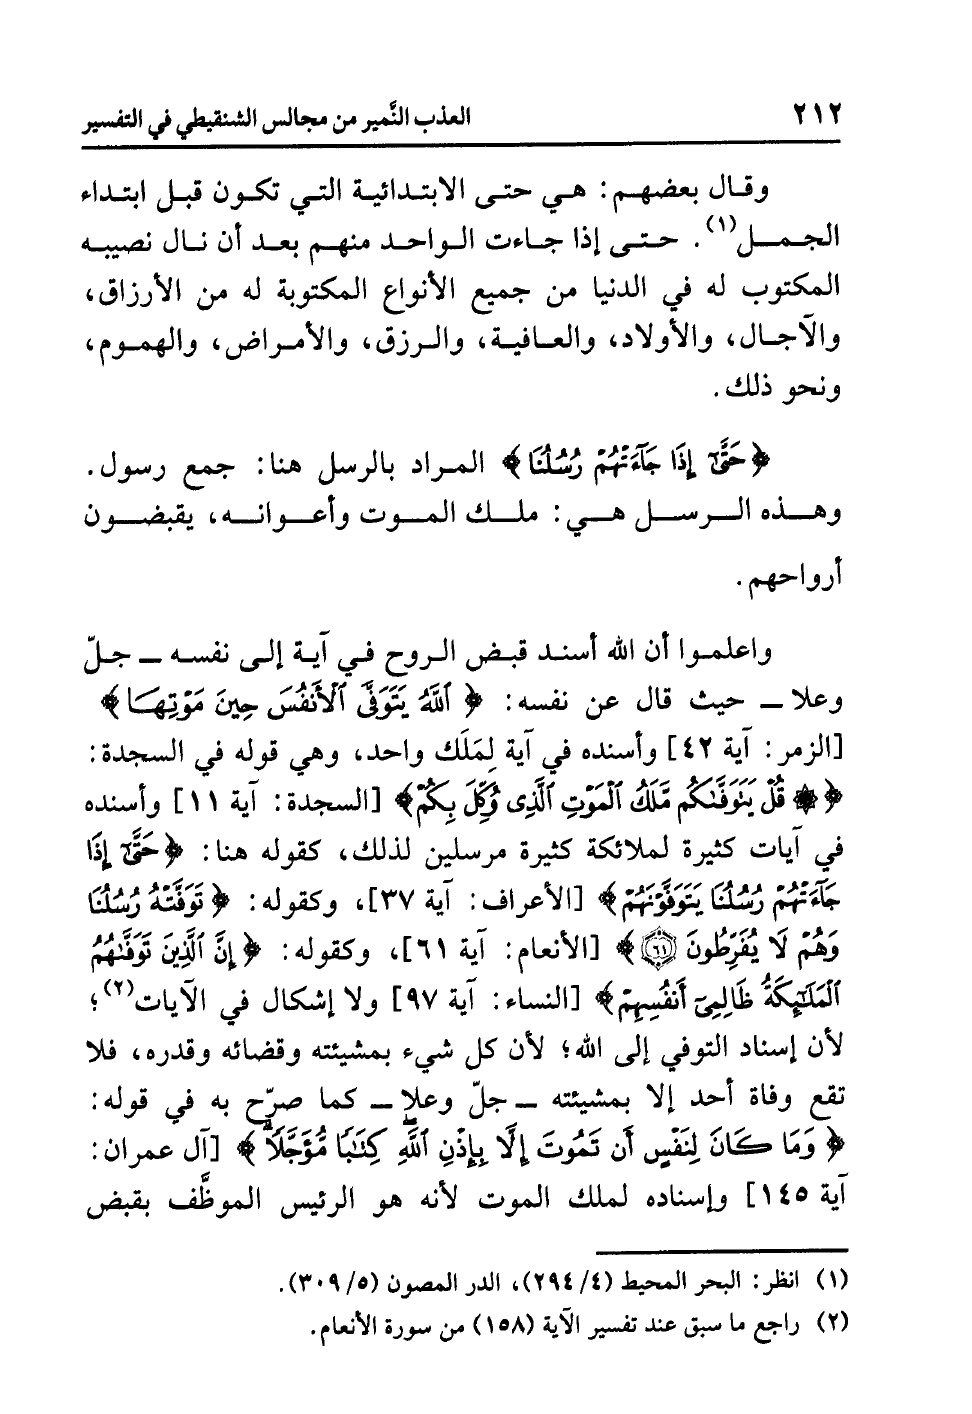 ٢١٢ العذب النَّمير من مجالس الشنقيطي في التفسير
وقال بعضهم: هي حتى الابتدائية التي تكون قبل ابتداء
الجمل(١). حتى إذا جاءت الواحد منهم بعد أن نال نصيبه
المكتوب له في الدنيا من جميع الأنواع المكتوبة له من الأرزاق،
والآجال، والأولاد، والعافية، والرزق، والأمراض، والهموم،
ونحو ذلك.
﴿حَتَّىٰٓ إِذَا جَآءَتْهُمْ رُسُلُنَا﴾ المراد بالرسل هنا: جمع رسول.
وهذه الرسل هي: ملك الموت وأعوانه، يقبضون
أرواحهم.
واعلموا أن الله أسند قبض الروح في آية إلى نفسه ــ جلّ
وعلا ــ حيث قال عن نفسه: ﴿ٱللَّهُ يَتَوَفَّى ٱلْأَنفُسَ حِينَ مَوْتِهَا﴾
[الزمر: آية ٤٢] وأسنده في آية لِمَلَك واحد، وهي قوله في السجدة:
﴿۞ قُلْ يَتَوَفَّىٰكُم مَّلَكُ ٱلْمَوْتِ ٱلَّذِى وُكِّلَ بِكُمْ﴾ [السجدة: آية ١١] وأسنده
في آيات كثيرة لملائكة كثيرة مرسلين لذلك، كقوله هنا: ﴿حَتَّىٰٓ إِذَا
جَآءَتْهُمْ رُسُلُنَا يَتَوَفَّوْنَهُمْ﴾ [الأعراف: آية ٣٧]، وكقوله: ﴿تَوَفَّتْهُ رُسُلُنَا
وَهُمْ لَا يُفَرِّطُونَ ٦١﴾ [الأنعام: آية ٦١]، وكقوله: ﴿إِنَّ ٱلَّذِينَ تَوَفَّىٰهُمُ
ٱلْمَلَٰٓئِكَةُ ظَالِمِىٓ أَنفُسِهِمْ﴾ [النساء: آية ٩٧] ولا إشكال في الآيات(٢)؛
لأن إسناد التوفي إلى الله؛ لأن كل شيء بمشيئته وقضائه وقدره، فلا
تقع وفاة أحد إلا بمشيئته ــ جلّ وعلا ــ كما صرّح به في قوله:
﴿وَمَا كَانَ لِنَفْسٍ أَن تَمُوتَ إِلَّا بِإِذْنِ ٱللَّهِ كِتَٰبًا مُّؤَجَّلًا﴾ [آل عمران:
آية ١٤٥] وإسناده لملك الموت لأنه هو الرئيس الموظَّف بقبض
(١) انظر: البحر المحيط (٢٩٤/٤)، الدر المصون (٣٠٩/٥).
(٢) راجع ما سبق عند تفسير الآية (١٥٨) من سورة الأنعام.